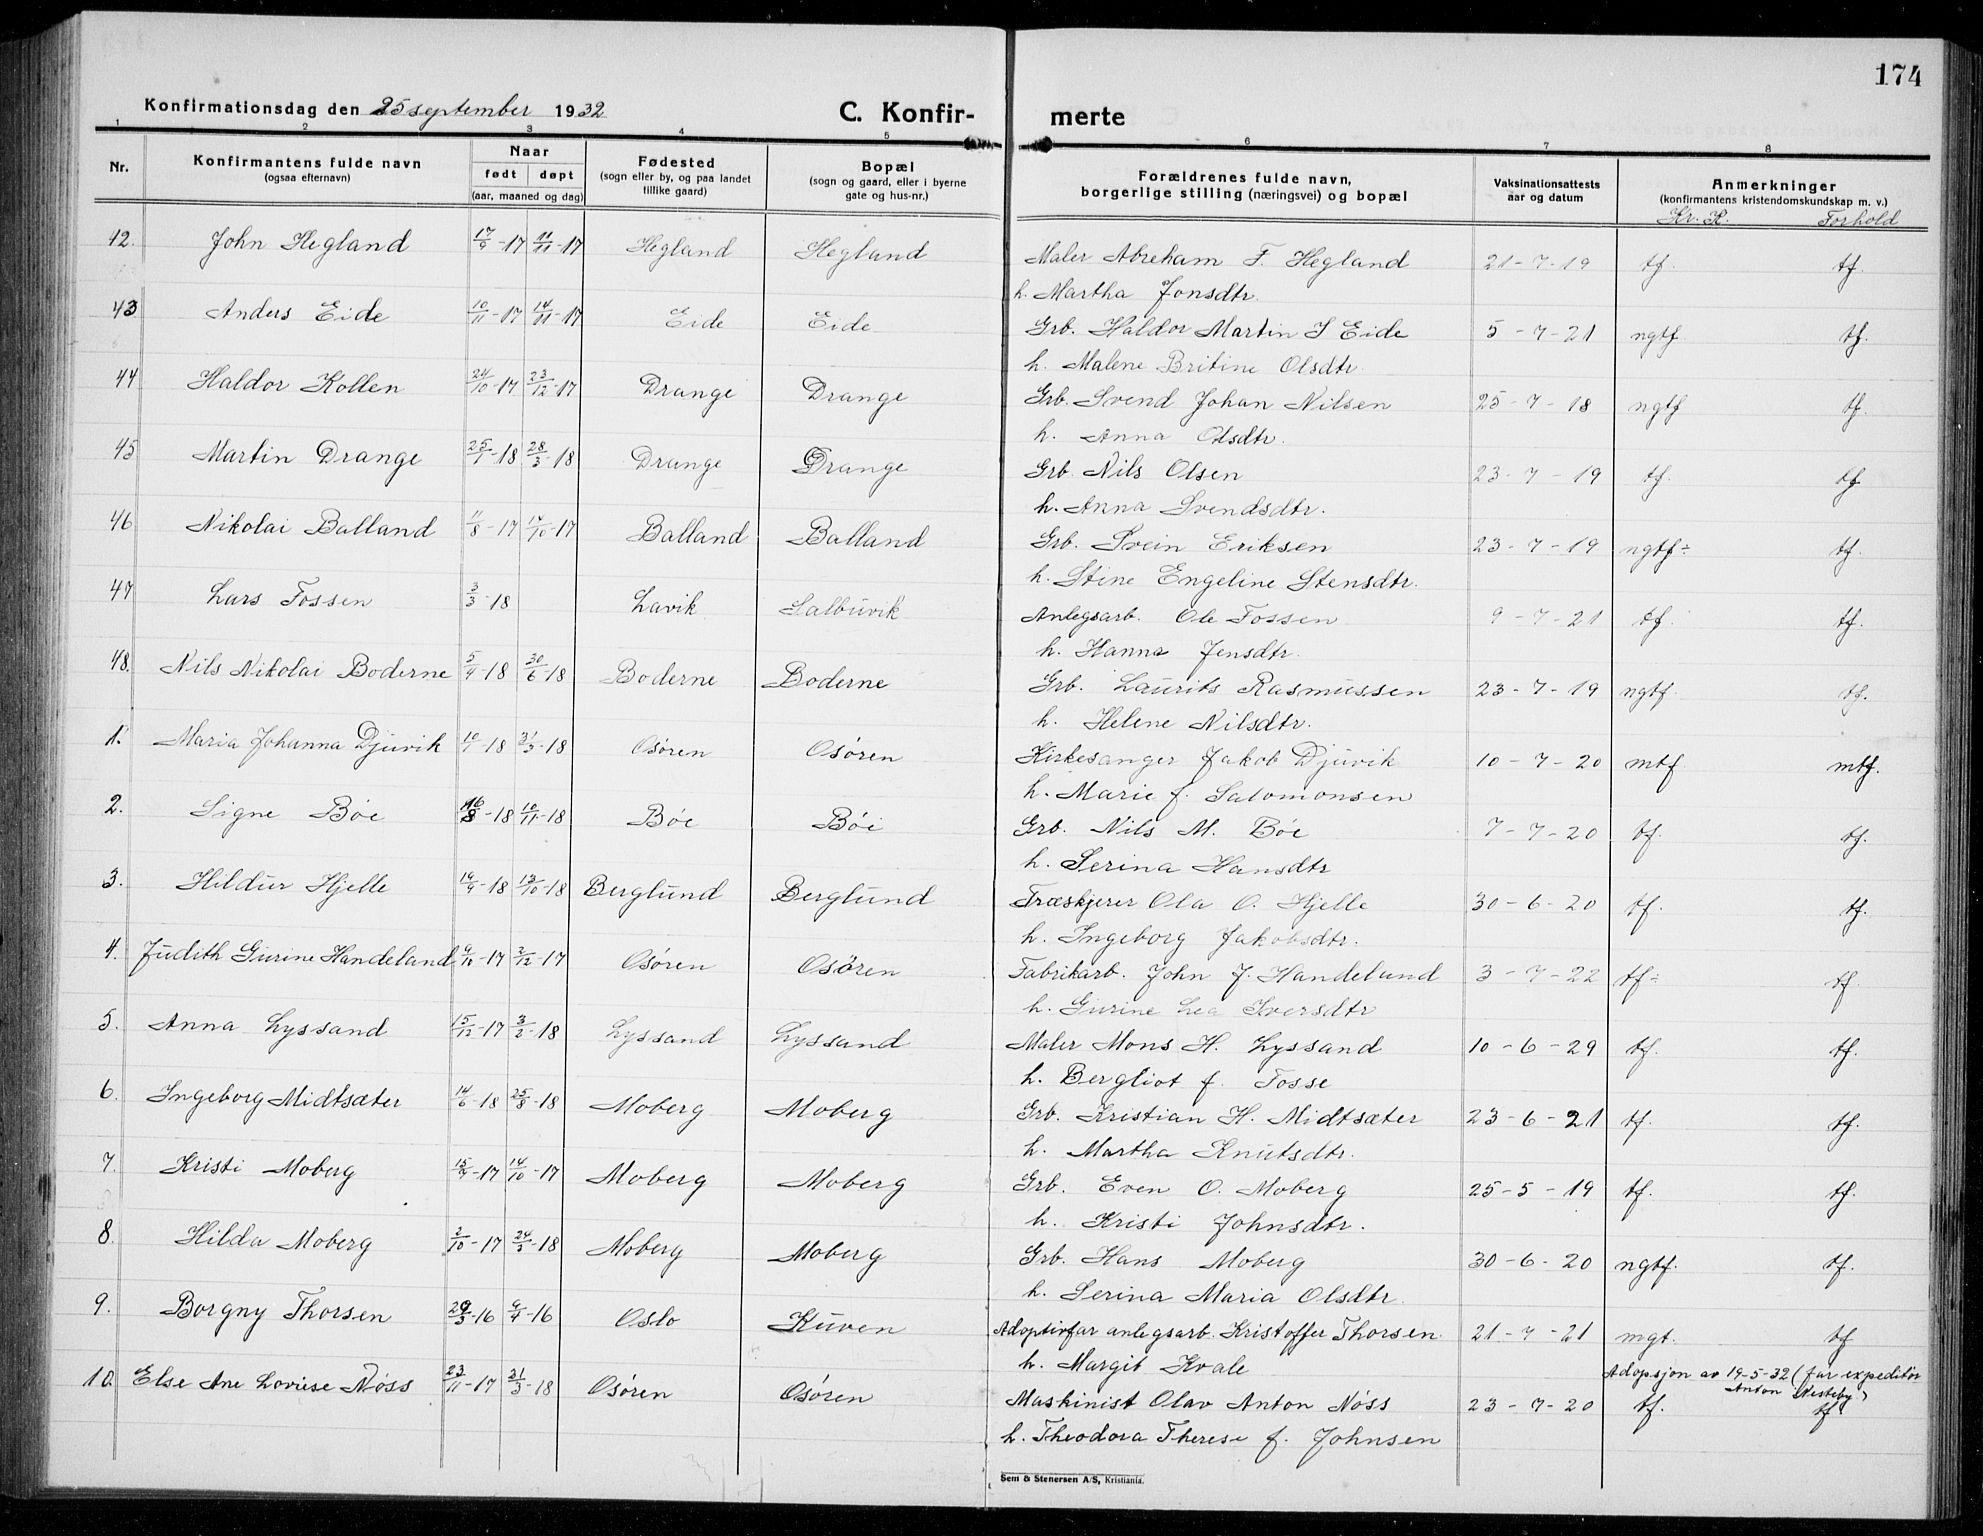 174
Konfirmationsdag den 25 september 1932 C. Konfir- merte
1 2 3 4 5 6 7 8
Nr. Konfirmantens fulde navn (ogsaa efternavn) Naar født døpt (aar, maaned og dag) Fødested (sogn eller by, og paa landet tillike gaard) Bopæl (sogn og gaard, eller i byerne gate og hus-nr.) Forældrenes fulde navn, borgerlige stilling (næringsvei) og bopæl Vaksinationsattests aar og datum Anmerkninger (konfirmantens kristendomskundskap m. v.)
Kr. K. Forhold
42. John Hegland 17/9-17 11/11-17 Hegland Hegland Maler Abreham F. Hegland 21-7-19 tf. tf.
h. Martha Jonsdtr.
43 Anders Eide 10/11-17 14/11-17 Eide Eide Grb. Haldor Martin J Eide 5-7-21 ngtf tf.
h. Malene Britine Olsdtr.
44 Haldor Kollen 24/10-17 23/12-17 Drange Drange Grb. Svend Johan Nilsen 25-7-18 ngtf tf.
h. Anna Olsdtr.
45 Martin Drange 25/1-18 28/3-18 Drange Drange Grb. Nils Olsen 23-7-19 tf. tf
h. Anna Svendsdtr.
46 Nikolai Balland 11/8-17 14/10-17 Balland Balland Grb. Svein Eriksen 23-7-19 ngtf÷ tf.
h. Stine Engeline Stensdtr.
47 Lars Fossen 3/3-18 Lavik Salbuvik Anlegsarb. Ole Fossen 9-7-21 tf. tf.
h. Hanna Jensdtr.
48. Nils Nikolai Boderne 5/4-18 30/6-18 Boderne Boderne Grb. Laurits Rasmussen 23-7-19 ngtf. tf.
h. Helene Nilsdtr.
1. Maria Johanna Djuvik 10/1-18 31/3-18 Osøren Osøren Kirkesanger Jakob Djuvik 10-7-20 mtf mtf.
h. Marie f. Salomonsen
2. Signe Bøe 16/8-18 10/11-18 Bøe Bøi Grb. Nils M. Bøe 7-7-20 tf. tf.
h. Serina Hansdtr
3. Hildur Hjelle 19/9-18 13/10-18 Berglund Berglund Træskjerer Ola O. Hjelle 30-6-20 tf. tf.
h. Ingeborg Jakobsdtr.
4. Judith Gurine Handeland 9/10-17 2/12-17 Osøren Osøren Fabrikarb. John J. Handeland 3-7-22 tf÷ tf
h. Gurine Lea Iversdtr
5. Anna Lyssand 15/12-17 3/2-18 Lyssand Lyssand Maler Mons H. Lyssand 10-6-29 tf. tf.
h. Bergliot f. Fosse
6. Ingeborg Midtsæter 14/6-18 25/8-18 Moberg Moberg Grb. Kristian H. Midtsæter 23-6-21 tf. tf.
h. Martha Knutsdtr.
7. Kristi Moberg 15/9-17 14/10-17 Moberg Moberg Grb. Even O. Moberg 25-5-19 tf. tf.
h. Kristi Johnsdtr.
8. Hilda Moberg 2/10-17 24/3-18 Moberg Moberg Grb. Hans Moberg 30-6-20 ngtf. tf.
h. Serina Maria Olsdtr.
9. Borgny Thorsen 29/3-16 9/4-16 Oslo Kuven Adoptivfar anlegsarb. Kristoffer Thorsen 21-7-21 mgt. tf
h. Margit Kvale Adopsjon av 19-5-32 (far expeditør Anton Nesteby)
10. Else Ane Lovise Nøss 23/11-17 31/3-18 Osøren Osøren Maskinist Olav Anton Nøss 23-7-20 tf. tf
h. Theodora Therese f. Johnsen
Sem & Stenersen A/S, Kristiania.